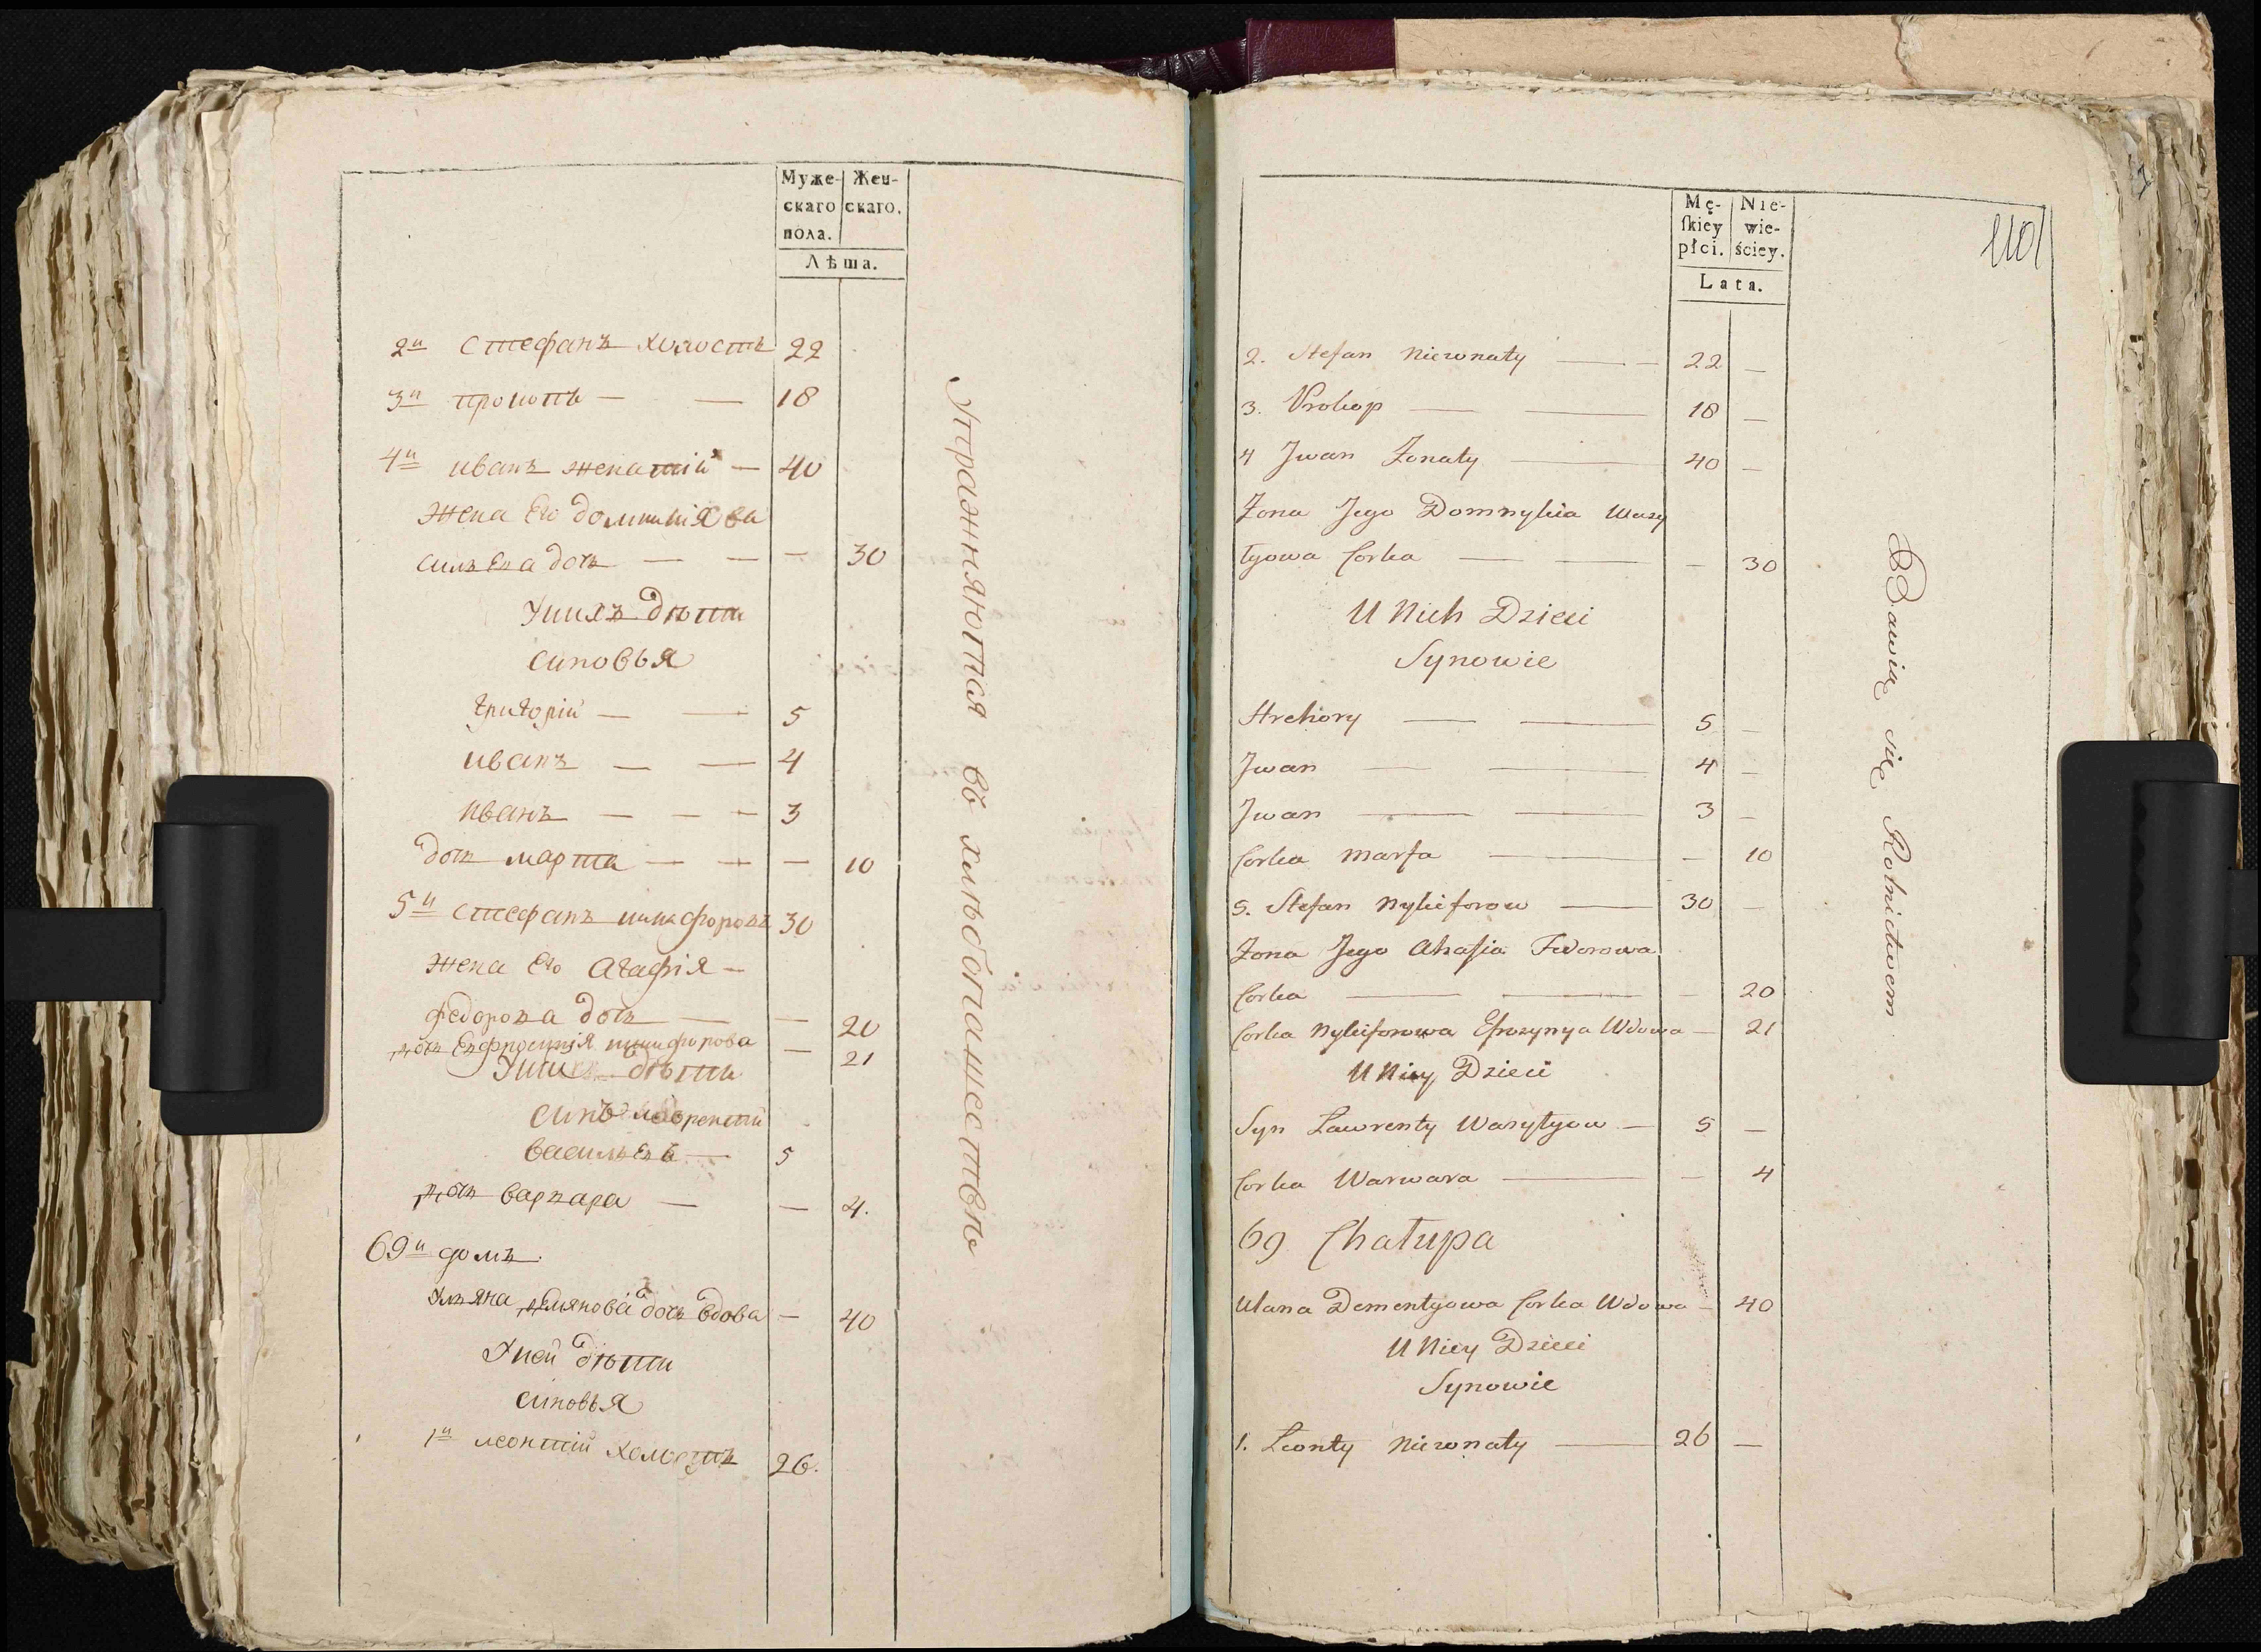 Муже- Жен-
скаго скаго.
пола.
Лѣта.
2й Стефанъ холостъ 22
3й Прокопъ — — 18
4й иванъ женатій — 40
жена Его домникія ва
силѣва дочь — — — 30
У нихъ дѣти
синовья
григорій — — 5
иванъ — — 4
иванъ — — — 3
дочь марта — — — 10
5й Стефанъ никифоровъ 30
жена Его Агафія —
федорова дочь — — 20
дочь Евфросинія никифорова — 21
У ни дѣти
синъ лаврентій
василѣвъ — 5
дочь варвара — — 4.
69й домъ
Уляна демянова дочь вдова — 40
У ней дѣти
синовья
1й леонтій холостъ 26.
Упражняются въ хлѣбопашествѣ
Mę- Nie-
skiey wie-
płci. ściey.
Lata.
110
2. Stefan Nieżonaty — — 22 —
3. Prokop — — 18 —
4 Jwan Żonaty — 40 —
Żona Jego Domnykia Wasy
lyowa Corka — — — 30
U Nich Dzieci
Synowie
Hrehory — — 5 —
Jwan — — 4 —
Jwan — — 3 —
Corka Marfa — — 10
5. Stefan Nykiforow — 30 —
Żona Jego Ahafia Fedorowa
Corka — — — 20
Corka Nykiforowa Efrozynya Wdowa — 21
U Niey Dzieci
Syn Ławrenty Wasylyow — 5 —
Corka Warwara — — 4
69 Chałupa
Ulana Dementyowa Corka Wdowa — 40
U Niey Dzieci
Synowie
1. Leonty Nieżonaty — 26 —
Bawią się Rolnictwem